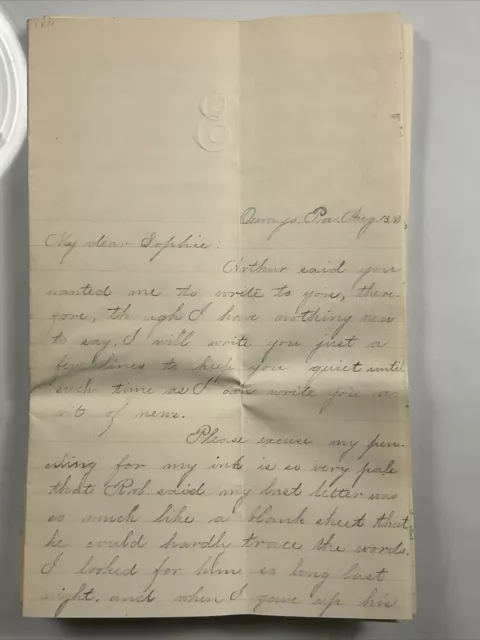 Pa. Aug. 13,
My dear Sophie:
Arthur said you
wanted me to write to you, there-
fore, th ugh I have nothing new
to say, I will write you just a
few lines to keep you quiet until
such time as I can write you a
bit of news.
Please excuse my pen-
ciling for my ink is so very pale
that Rob. said my last letter was
so much like a blank sheet that
he could hardly trace the words.
I looked for him so long last
night, and when I gave up his